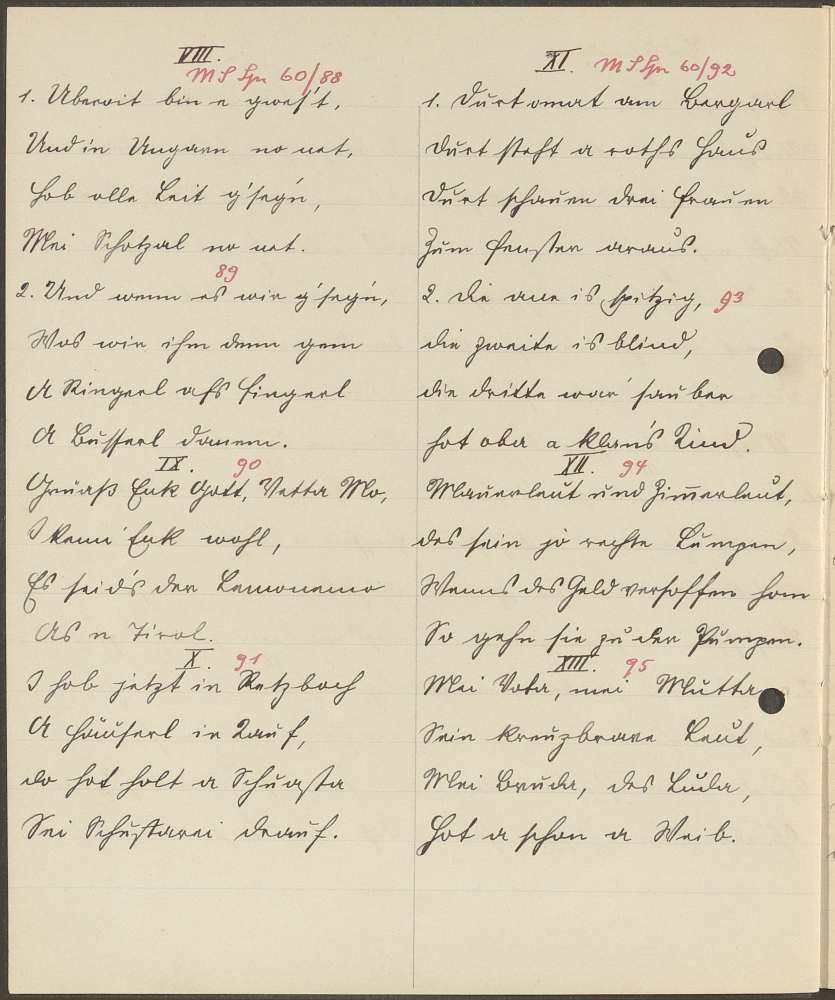 VIII.
MS Spr 60/88
1. Uberoit bin e gwes't,
Und in Ungarn no net,
Hob olle Leit g'segn,
Mei Schotzal no net.
89
2. Und wenn es wir g'segn,
Wos wir ihm denn gem
A Ringerl afs Fingerl
A Busserl danem.
IX. 90
Grüaß Enk Gott, Vetta Mo,
I kenn' Enk wohl,
Es seids der Lemonemo
As n Tirol.
X. 91
I hob jetzt in Retzboch
A Häuserl in Kauf,
do hot holt a Schuasta
Sei Schustarei drauf.
XI. MS Spr 60/92
1. Durt omat am Bergarl
Durt steht a roths Haus
Durt schauen drei Frauen
Zum Fenster araus.
2. Die ane is spitzig, 93
die zweite is blind,
die dritte war' sauber
hot oba a klan's Kind.
XII. 94
Mauerleut und Zimmerleut,
des sein jo rechte Lumpen,
Wenns des Geld versoffen hom
So gehn sie zu der Pumpen.
XIII. 95
Mei Vota, mei Mutta
Sein kreuzbrave Leut,
Mei Bruda, des Luda,
Hot a schon a Weib.